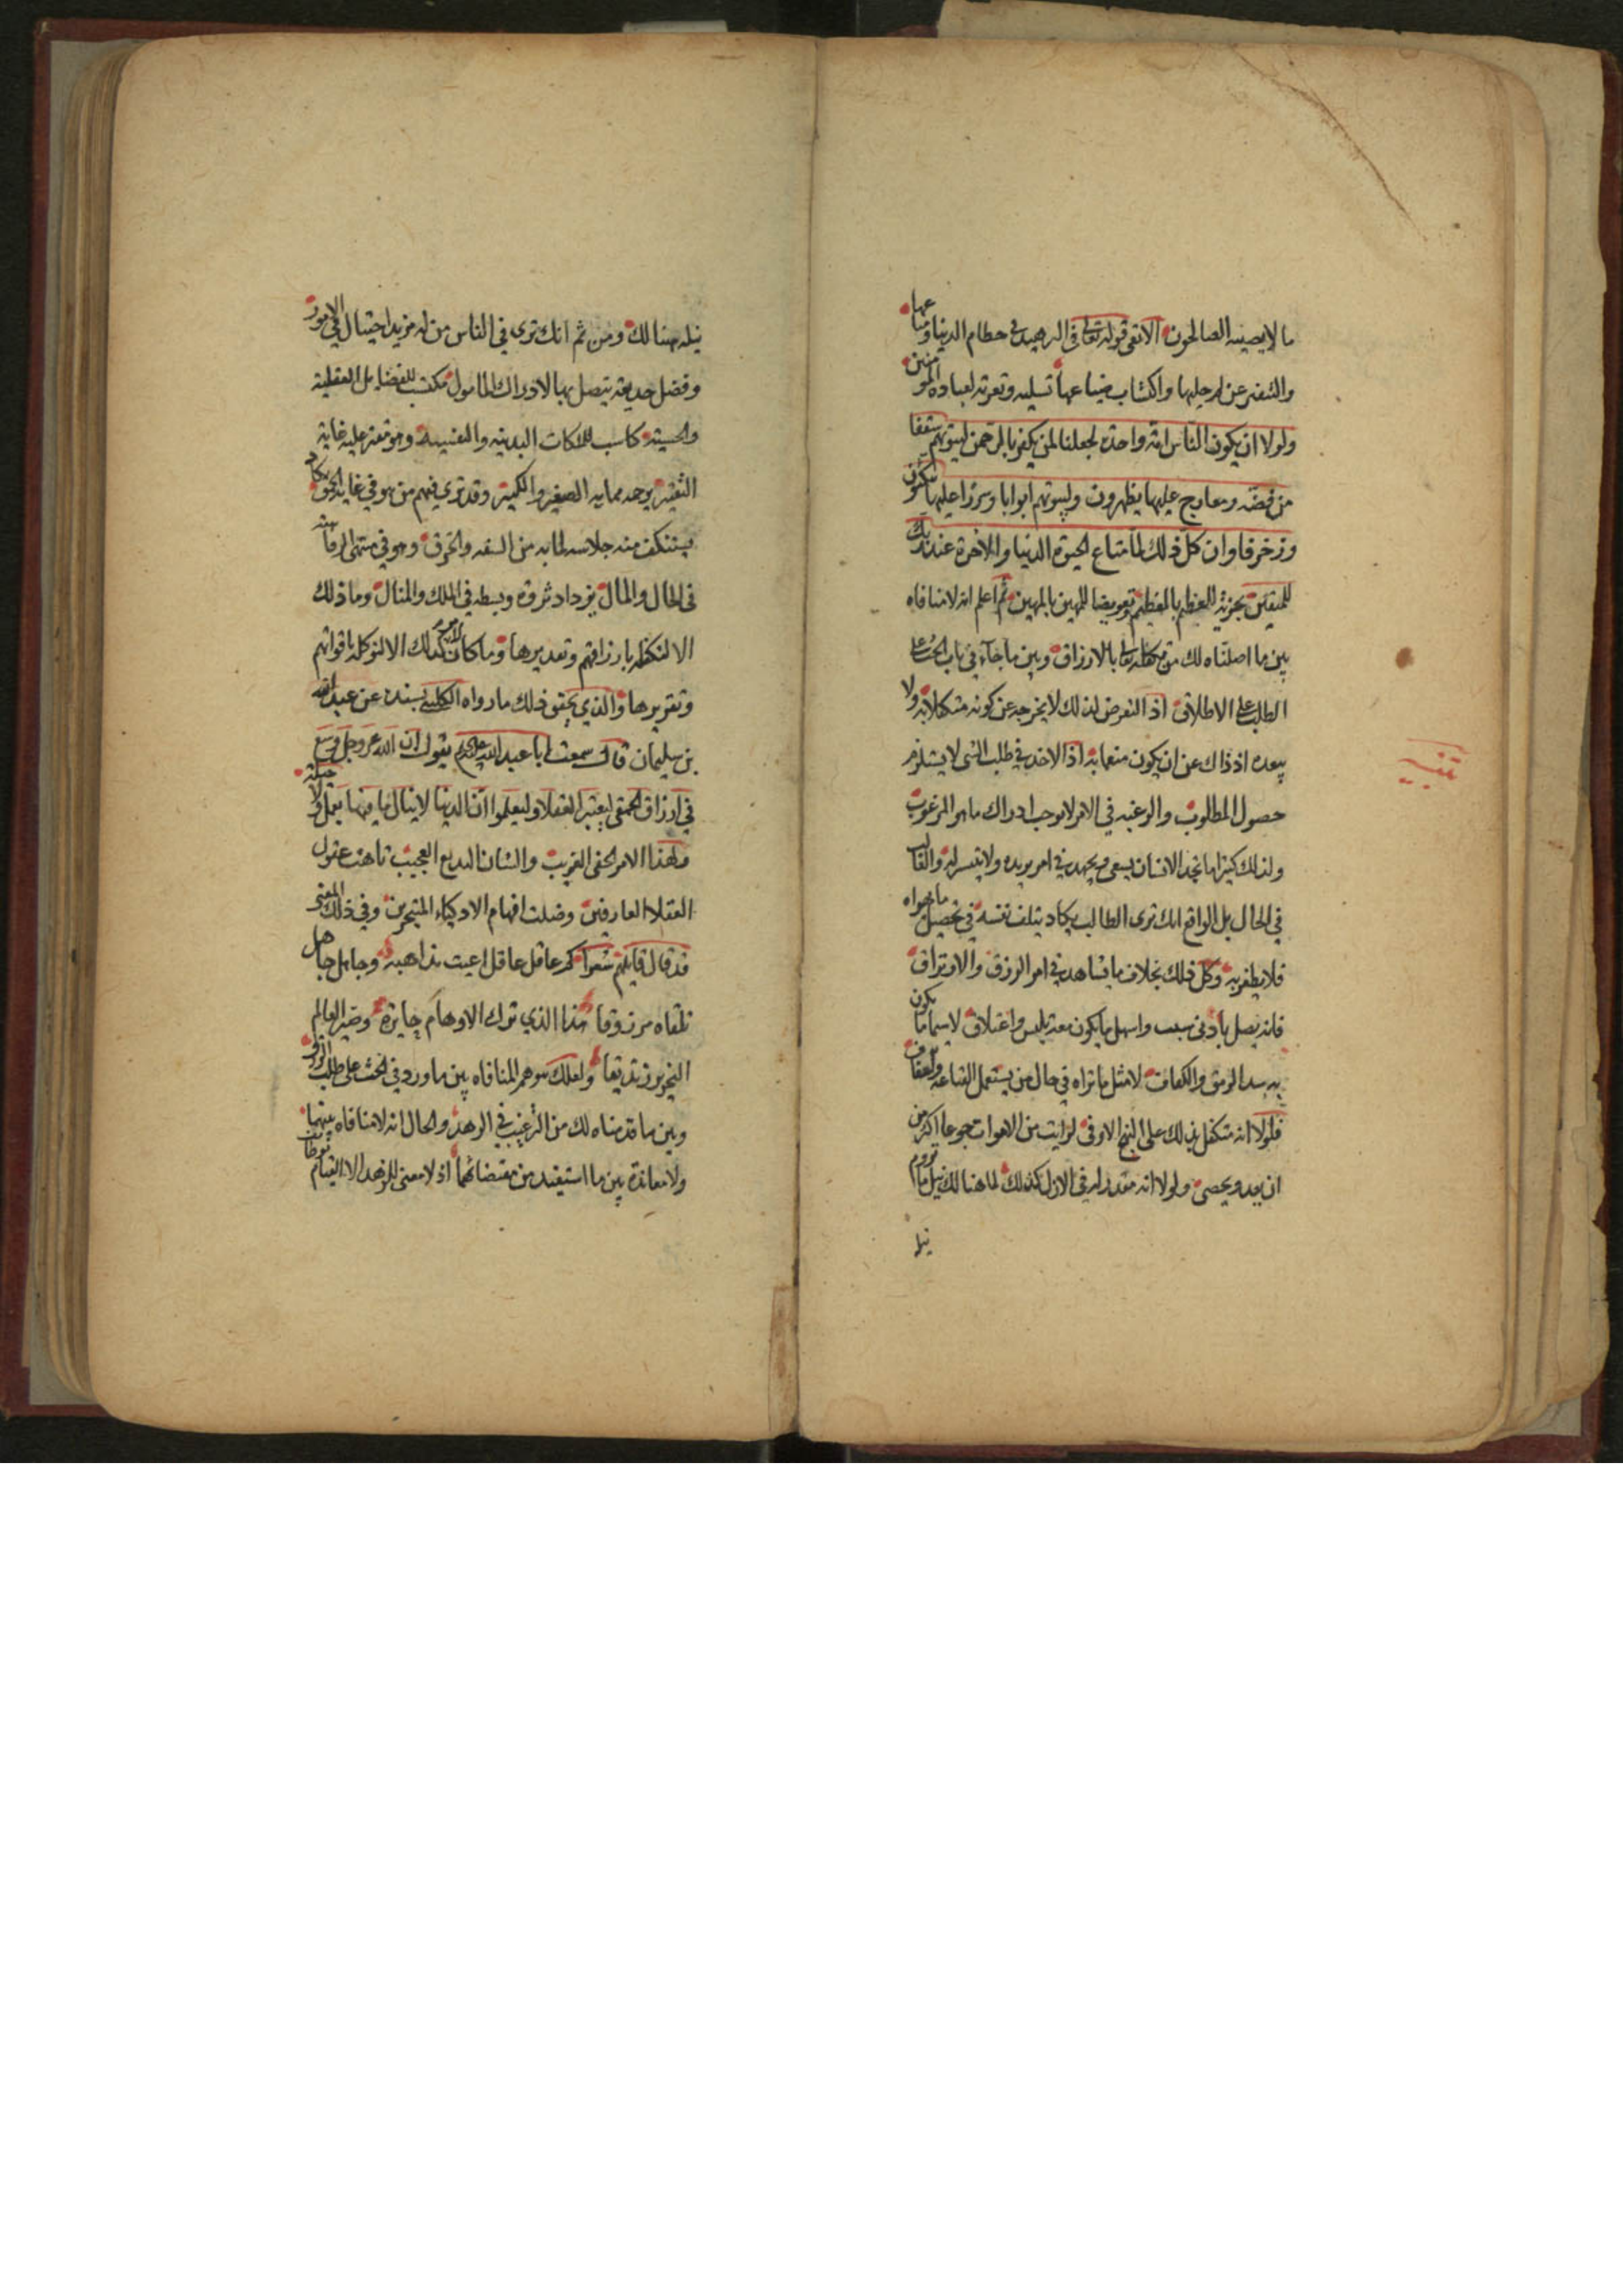 ما لا يصيبه الصالحون الا تقى قوله تعالى في الزهيد في حطام الدنيا ومتاعها
والتنفير عن واكتساب ضياعها تسليه وتعزية لعباده المؤمنين
ولولا ان يكون الناس امة واحدة لجعلنا لمن يكفر بالرحمن لبيوتهم سقفا
من فضة ومعارج عليها يظهرون ولبيوتهم ابوابا وسررا عليها يتكئون
وزخرفا وان كل ذلك لما متاع الحيوة الدنيا والاخرة عند ربك
للمتقين تعويضا للمهين بالمهين ثم اعلم انه لا منافاه
بين ما اصلناه لك من تكفله تعالى بالارزاق وبين ما جاء في باب الحث على
الطلب على الاطلاق اذ التعرض لذلك لا يخرجه عن كونه متكفلا به ولا
يبعده اذ ذاك عن ان يكون منعما به اذ الاخذ في طلب الشي لا يستلزم
حصول المطلوب والرغبه في الامر لا توجب ادراك ما هو المرغوب
ولذلك كثيرا ما تجد الانسان يسعى ويجهد في امر يريده ولا يتيسر له والغالب
في الحال بل الواقع انك ترى الطالب يكاد يتلف نفسه في تحصيل ما يهواه
فلا يظفر به وكل ذلك بخلاف ما تشاهد في امر الرزق والارتزاق
فانه يصل بادنى سبب واسهل ما يكون معه تلبس واعتلاق لا سيما ما يكون
به سد الرمق والكفاف لا مثل ما تراه في حال من يستعمل القناعه والعفاف
فلولا انه متكفل بذلك على النهج الاوفى لرايت من الاموات جوعا اكثر من
ان يعد ويحصى ولولا انه مقدر له في الازل كذلك لما هنالك نيل ما يروم
نيله
تنبيه
نيله هنالك ومن ثم انك ترى في الناس من له مزيد احتيال في الامور
وفضل حديقة يتصل بها لادراك المامول مكتسب للفضايل العقلية
والحسية كاسب للملكات البدنيه والنفسية وهو مقتر عليه غاية
التقتير يوجد مما به الصغير والكبير وقد ترى فيهم من هو في غاية الحمق يكاد
يستنكف منه جلاسه لما به من السفه والخرق وهو في منتهى الرفاهيه
في الحال والمال يزداد ثروة وبسطه في الملك والمنال وما ذلك
الا لتكفله بارزاقهم وتقديرها وما كان الامر كذلك الا لتوكله باقواتهم
وتقريرها والذي يحقق ذلك ما رواه الكليني بسنده عن عبد الله
بن سليمان قال سمعت ابا عبد الله عليه السلم يقول ان الله عز وجل وسع
في ارزاق الحمقى ليعتبر العقلاء وليعلموا ان الدنيا لا ينال ما فيها بعمل ولا حيلة
ولهذا الامر الخفي الغريب والشان البديع العجيب تاهت عقول
العقلاء العارفين وضلت افهام الاذكياء المتبحرين وفي ذلك المعنى
قد قال قايلهم شعرا كم عاقل عاقل اعيت مذاهبه وجاهل جاهل
تلقاه مرزوقا هذا الذي ترك الاوهام حايرة وصير العالم
النحرير زنديقا ولعلك تتوهم المنافاه بين ما ورد في الحث على طلب الرزق
وبين ما قدمناه لك من الترغيب في الزهد والحال انه لا منافاه بينهما
ولا معاندة بين ما استفيد من مقتضاهما اذ لا معنى للزهد الا القيام